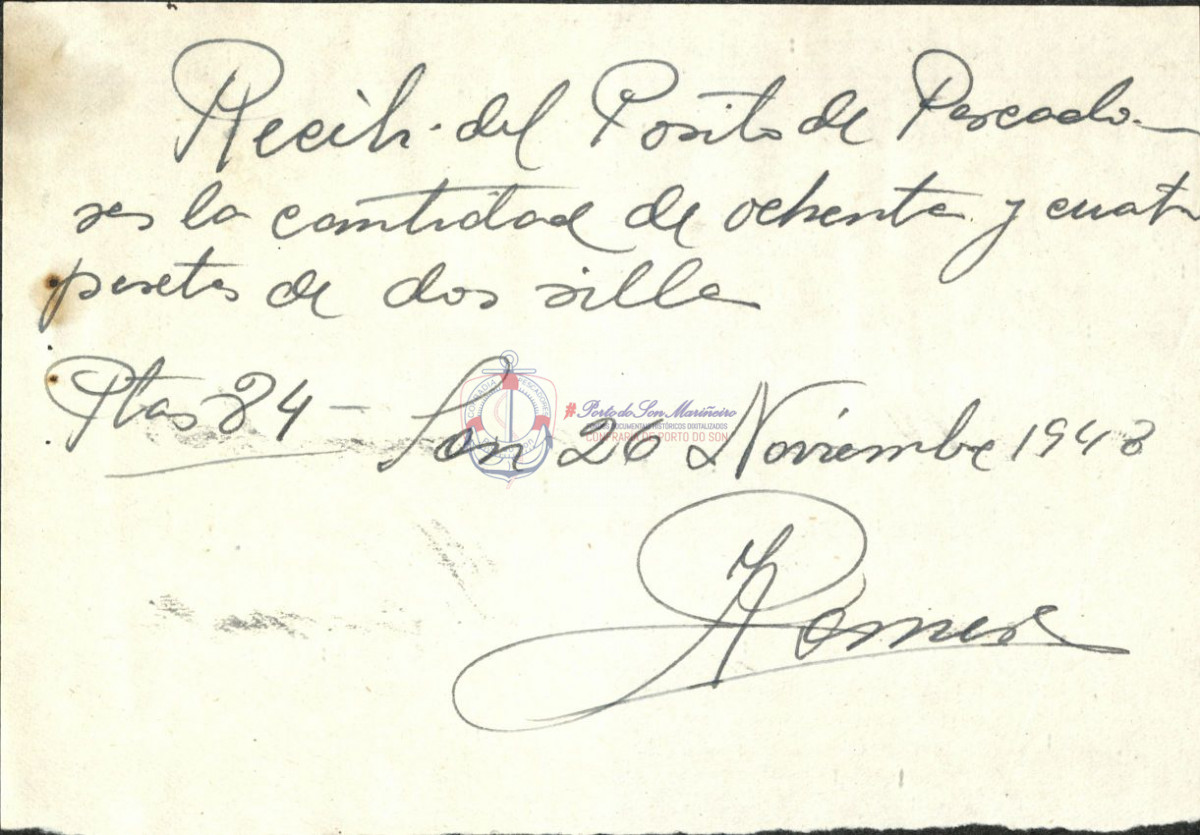 Recibi del Posito de Pescado-
res la cantidad de ochenta y cuatr
pesetas de dos silla
Ptas 84 - Son 26 Noviembre 1943
COFRADIA PESCADORES
#Porto do Son Mariñeiro
FONDOS DOCUMENTAIS HISTÓRICOS DIGITALIZADOS
CONFRARÍA DE PORTO DO SON
Romero